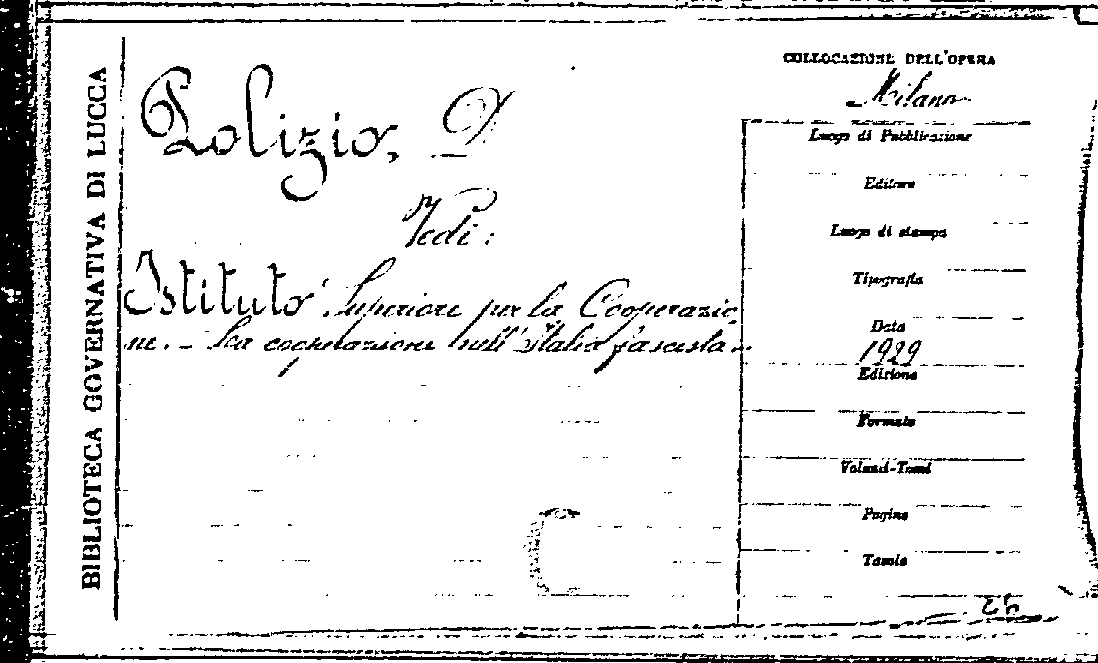 BIBLIOTECA GOVERNATIVA DI LUCCA
Polizio, D
Vedi:
Istituto Superiore per la Cooperazio
ne. - La cooperazione nell'Italia fascista -
COLLOCAZIONE DELL'OPERA
Milano
Luogo di Pubblicazione
Editore
Luogo di stampa
Tipografia
Data
1929
Edizione
Formato
Volumi-Tomi
Pagine
Tavole